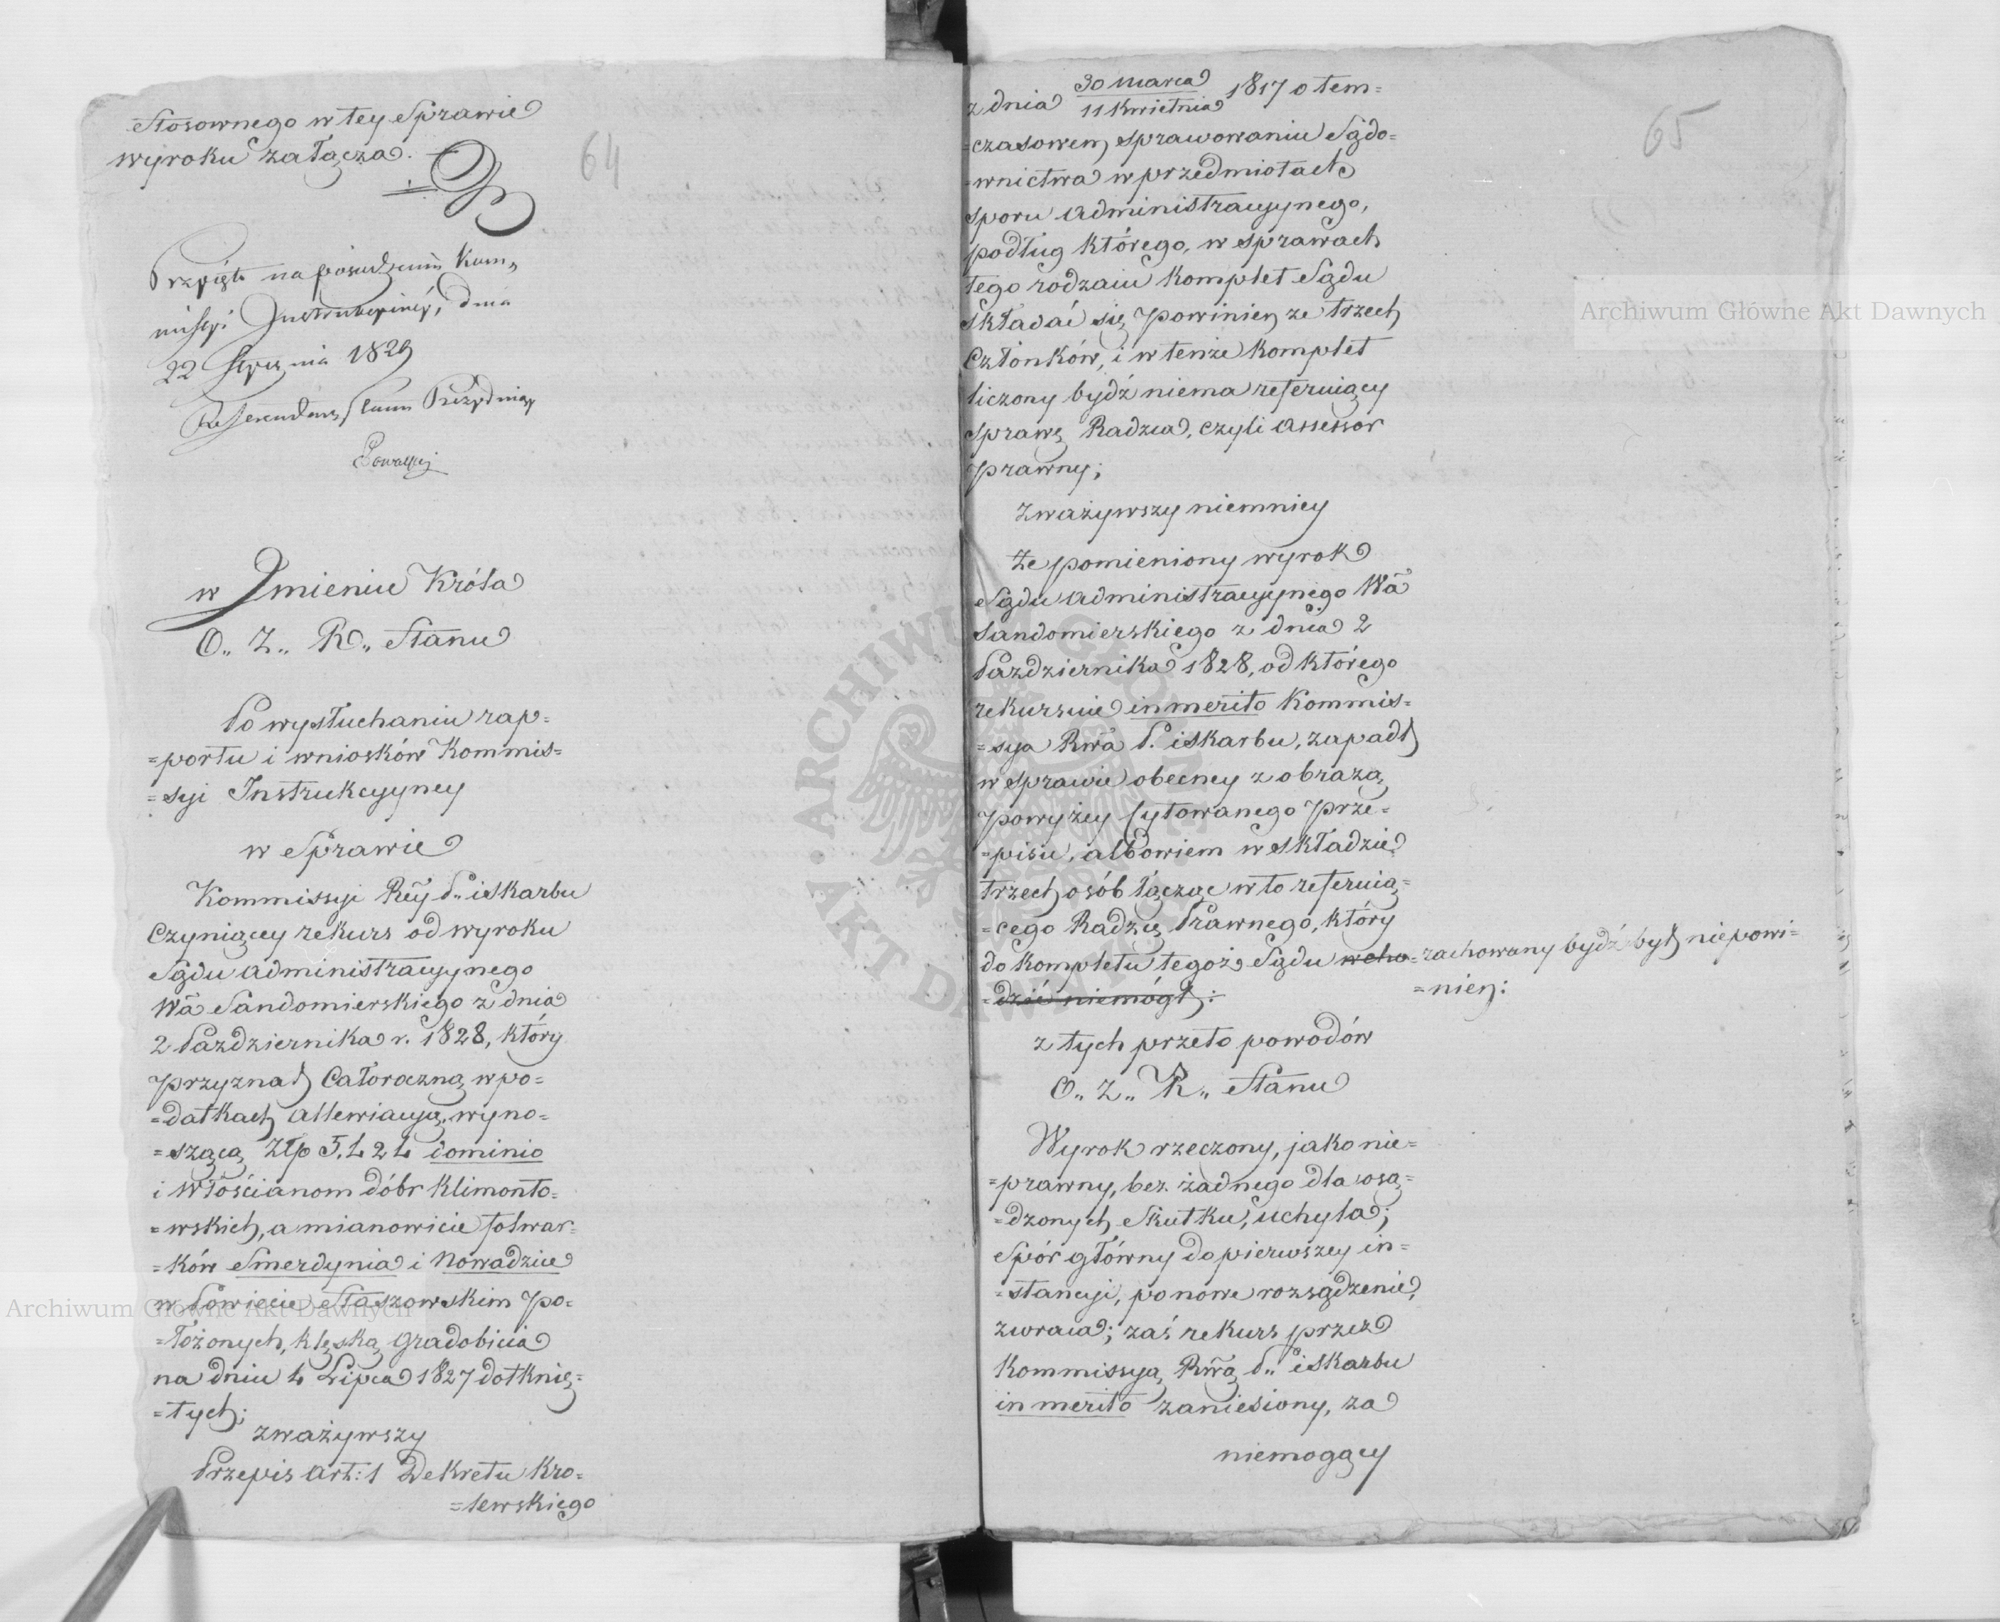 Stosownego w tey Sprawie
wyroku załącza.
64
Przyięto na posiedzeniu Kom„
missyi Instrukcyinéy, dnia
22 Stycznia 1829
Referendarz Stanu Prezyduiący
w Imieniu Króla
O„ Z„ R„ Stanu
Po wysłuchaniu rap=
=portu i wniosków Kommis=
=syi Instrukcyyney
w Sprawie
Kommissyi Rẽy P„ i Skarbu
czyniącey rekurs od wyroku
Sądu administracyynego
Wã Sandomierskiego z dnia
2 Października r. 1828, który
przyznał całoroczną w po=
=datkach allewiacyą, wyno=
=szącą Złp 5,424 dominio
i włościanom dóbr Klimonto=
=wskich, a mianowicie folwar=
=ków Smerdynia i Nowadzice
w Powiecie Staszowskim po=
=łożonych, klęską gradobicia
na dniu 4 Lipca 1827 dotknię=
=tych;
zważywszy
Przepis art: 1 Dekretu Kró=
=lewskiego
65
z dnia 30 Marca / 11 Kwietnia 1817 o tem=
=czasowem sprawowaniu Sądo=
=wnictwa w przedmiotach
sporu administracyynego,
podług którego, w sprawach
tego rodzaiu komplet Sądu
składać się powinien ze trzech
członków, i w tenże komplet
liczony bydź niema referuiący
sprawę Radzca, czyli assessor
prawny;
zważywszy niemniey
że pomieniony wyrok
Sądu administracyynego Wã
Sandomierskiego z dnia 2
Października 1828, od którego
rekursuie in merito Kommis=
=sya Rwã P. i Skarbu, zapadł
w sprawie obecney z obrazą
powyżey cytowanego prze=
=pisu, albowiem w składzie
trzech osób łącząc w to referuią=
=cego Radzcę Prawnego, który
do kompletu tegoż Sądu wcho= zachowany bydź był niepowi=
=dzić niemógł: =nien:
z tych przeto powodów
O„ Z„ R„ Stanu
Wyrok rzeczony, jako nie=
=prawny, bez żadnego dla osą=
=dzonych skutku, uchyla;
Spór główny do pierwszey in=
=stancyi, po nowe rozsądzenie,
zwraca; zaś rekurs przez
Kommissyą Rwã P„ i Skarbu
in merito zaniesiony, za
niemogący
Archiwum Główne Akt Dawnych
Archiwum Główne Akt Dawnych
ARCHIWUM GŁÓWNE AKT DAWNYCH